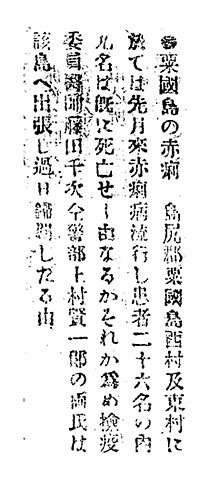 ●粟國島の赤痢 島尻郡粟國島西村及東村に
於ては先月來赤痢病流行し患者二十六名の内
九名は既に死亡せし由なるかそれか爲め檢疫
委員醫師藤田千次仝警部上村賢一郎の両氏は
該島へ出張し過日歸朝しだる由